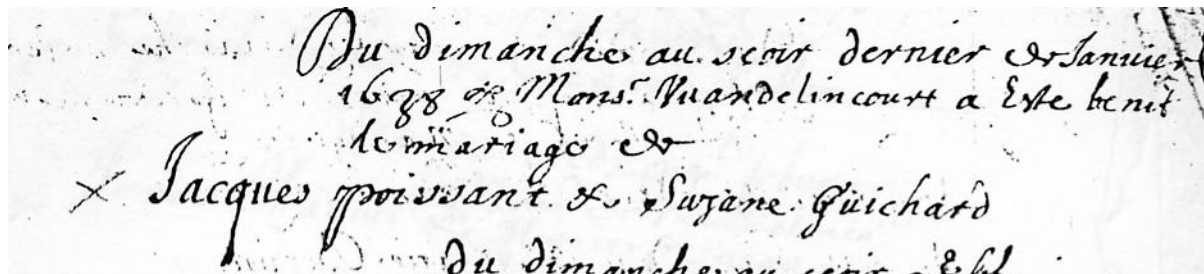 Du dimanche au seoir dernier de Janvier
1638 p Mons.r Vuandelincourt a Este benit
le mariage de
Jacques poissant & Suzane Guichard
du dimanche au seoir